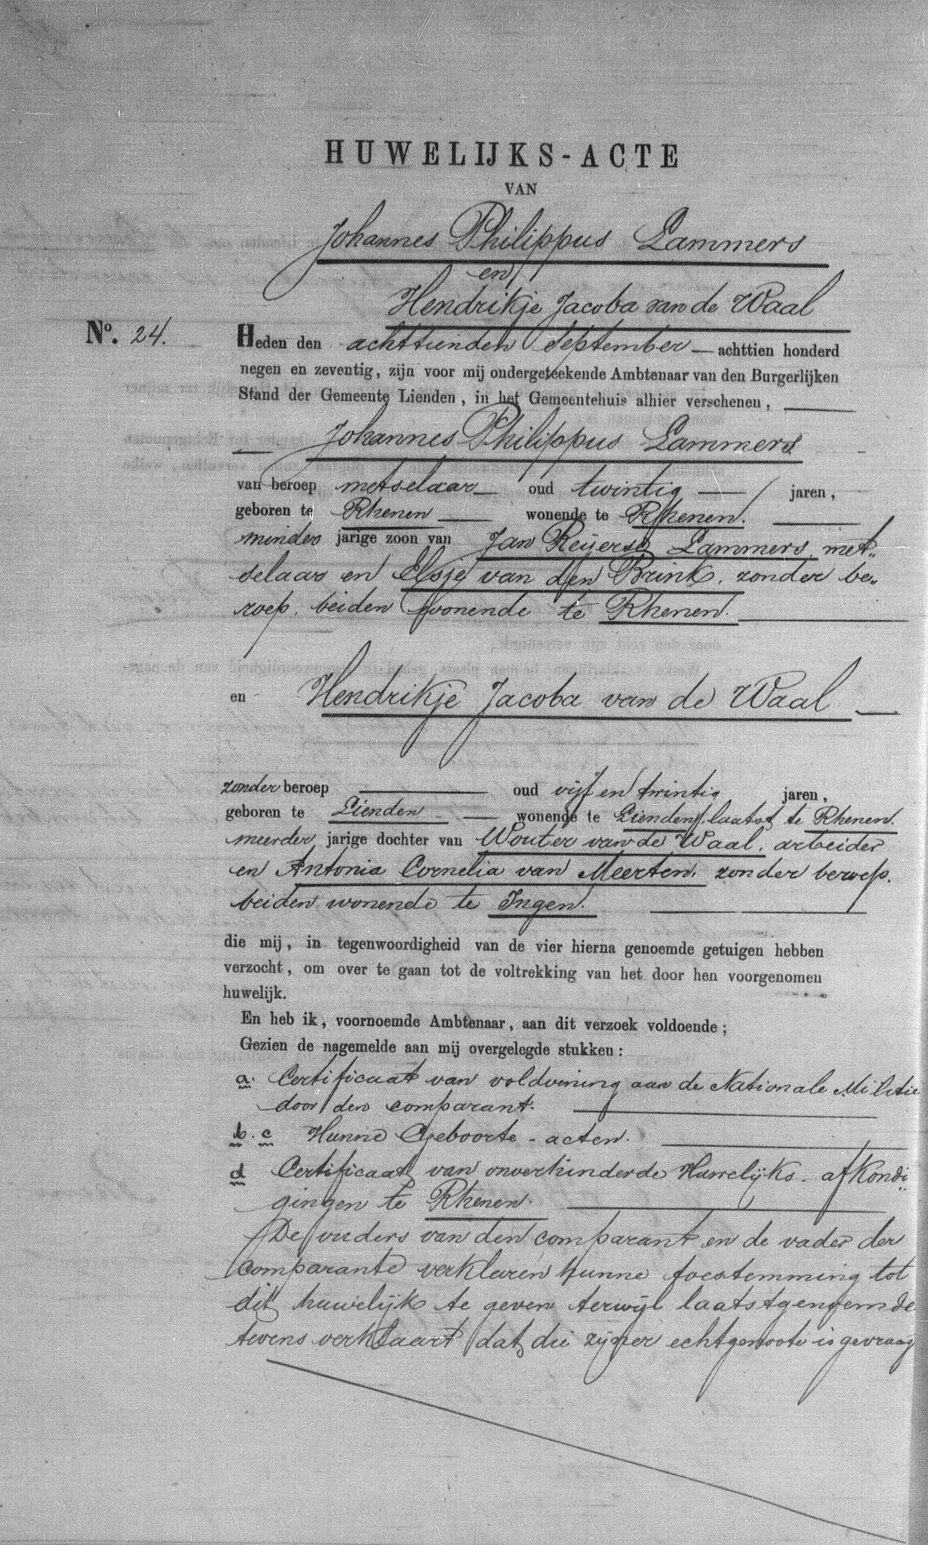 HUWELIJKS-ACTE
VAN
Johannes Philippus Lammers
en
Hendrikje Jacoba van de Waal
No. 24.
Heden den achttienden September — achttien honderd
negen en zeventig, zijn voor mij ondergeteekende Ambtenaar van den Burgerlijken
Stand der Gemeente Lienden, in het Gemeentehuis alhier verschenen,
Johannes Philippus Lammers
van beroep metselaar oud twintig jaren,
geboren te Rhenen wonende te Rhenen.
minder jarige zoon van Jan Reijerse Lammers, met„
selaar en Elsje van den Brink, zonder be„
roep, beiden wonende te Rhenen.
en Hendrikje Jacoba van de Waal
zonder beroep oud vijf en twintig jaren,
geboren te Lienden wonende te Lienden, laatst te Rhenen.
meerder jarige dochter van Wouter van de Waal, arbeider
en Antonia Cornelia van Meerten, zonder beroep.
beiden wonende te Ingen.
die mij, in tegenwoordigheid van de vier hierna genoemde getuigen hebben
verzocht, om over te gaan tot de voltrekking van het door hen voorgenomen
huwelijk.
En heb ik, voornoemde Ambtenaar, aan dit verzoek voldoende;
Gezien de nagemelde aan mij overgelegde stukken:
a. Certificaat van voldoening aan de Nationale Militie
door den comparant.
b. c Hunne Geboorte-acten.
d Certificaat van onverhinderde Huwelijks-afkondi„
gingen te Rhenen.
De ouders van den comparant en de vader der
comparante verklaren hunne toestemming tot
dit huwelijk te geven terwijl laatstgenoemde
tevens verklaart dat die zijner echtgenoote is gevraag